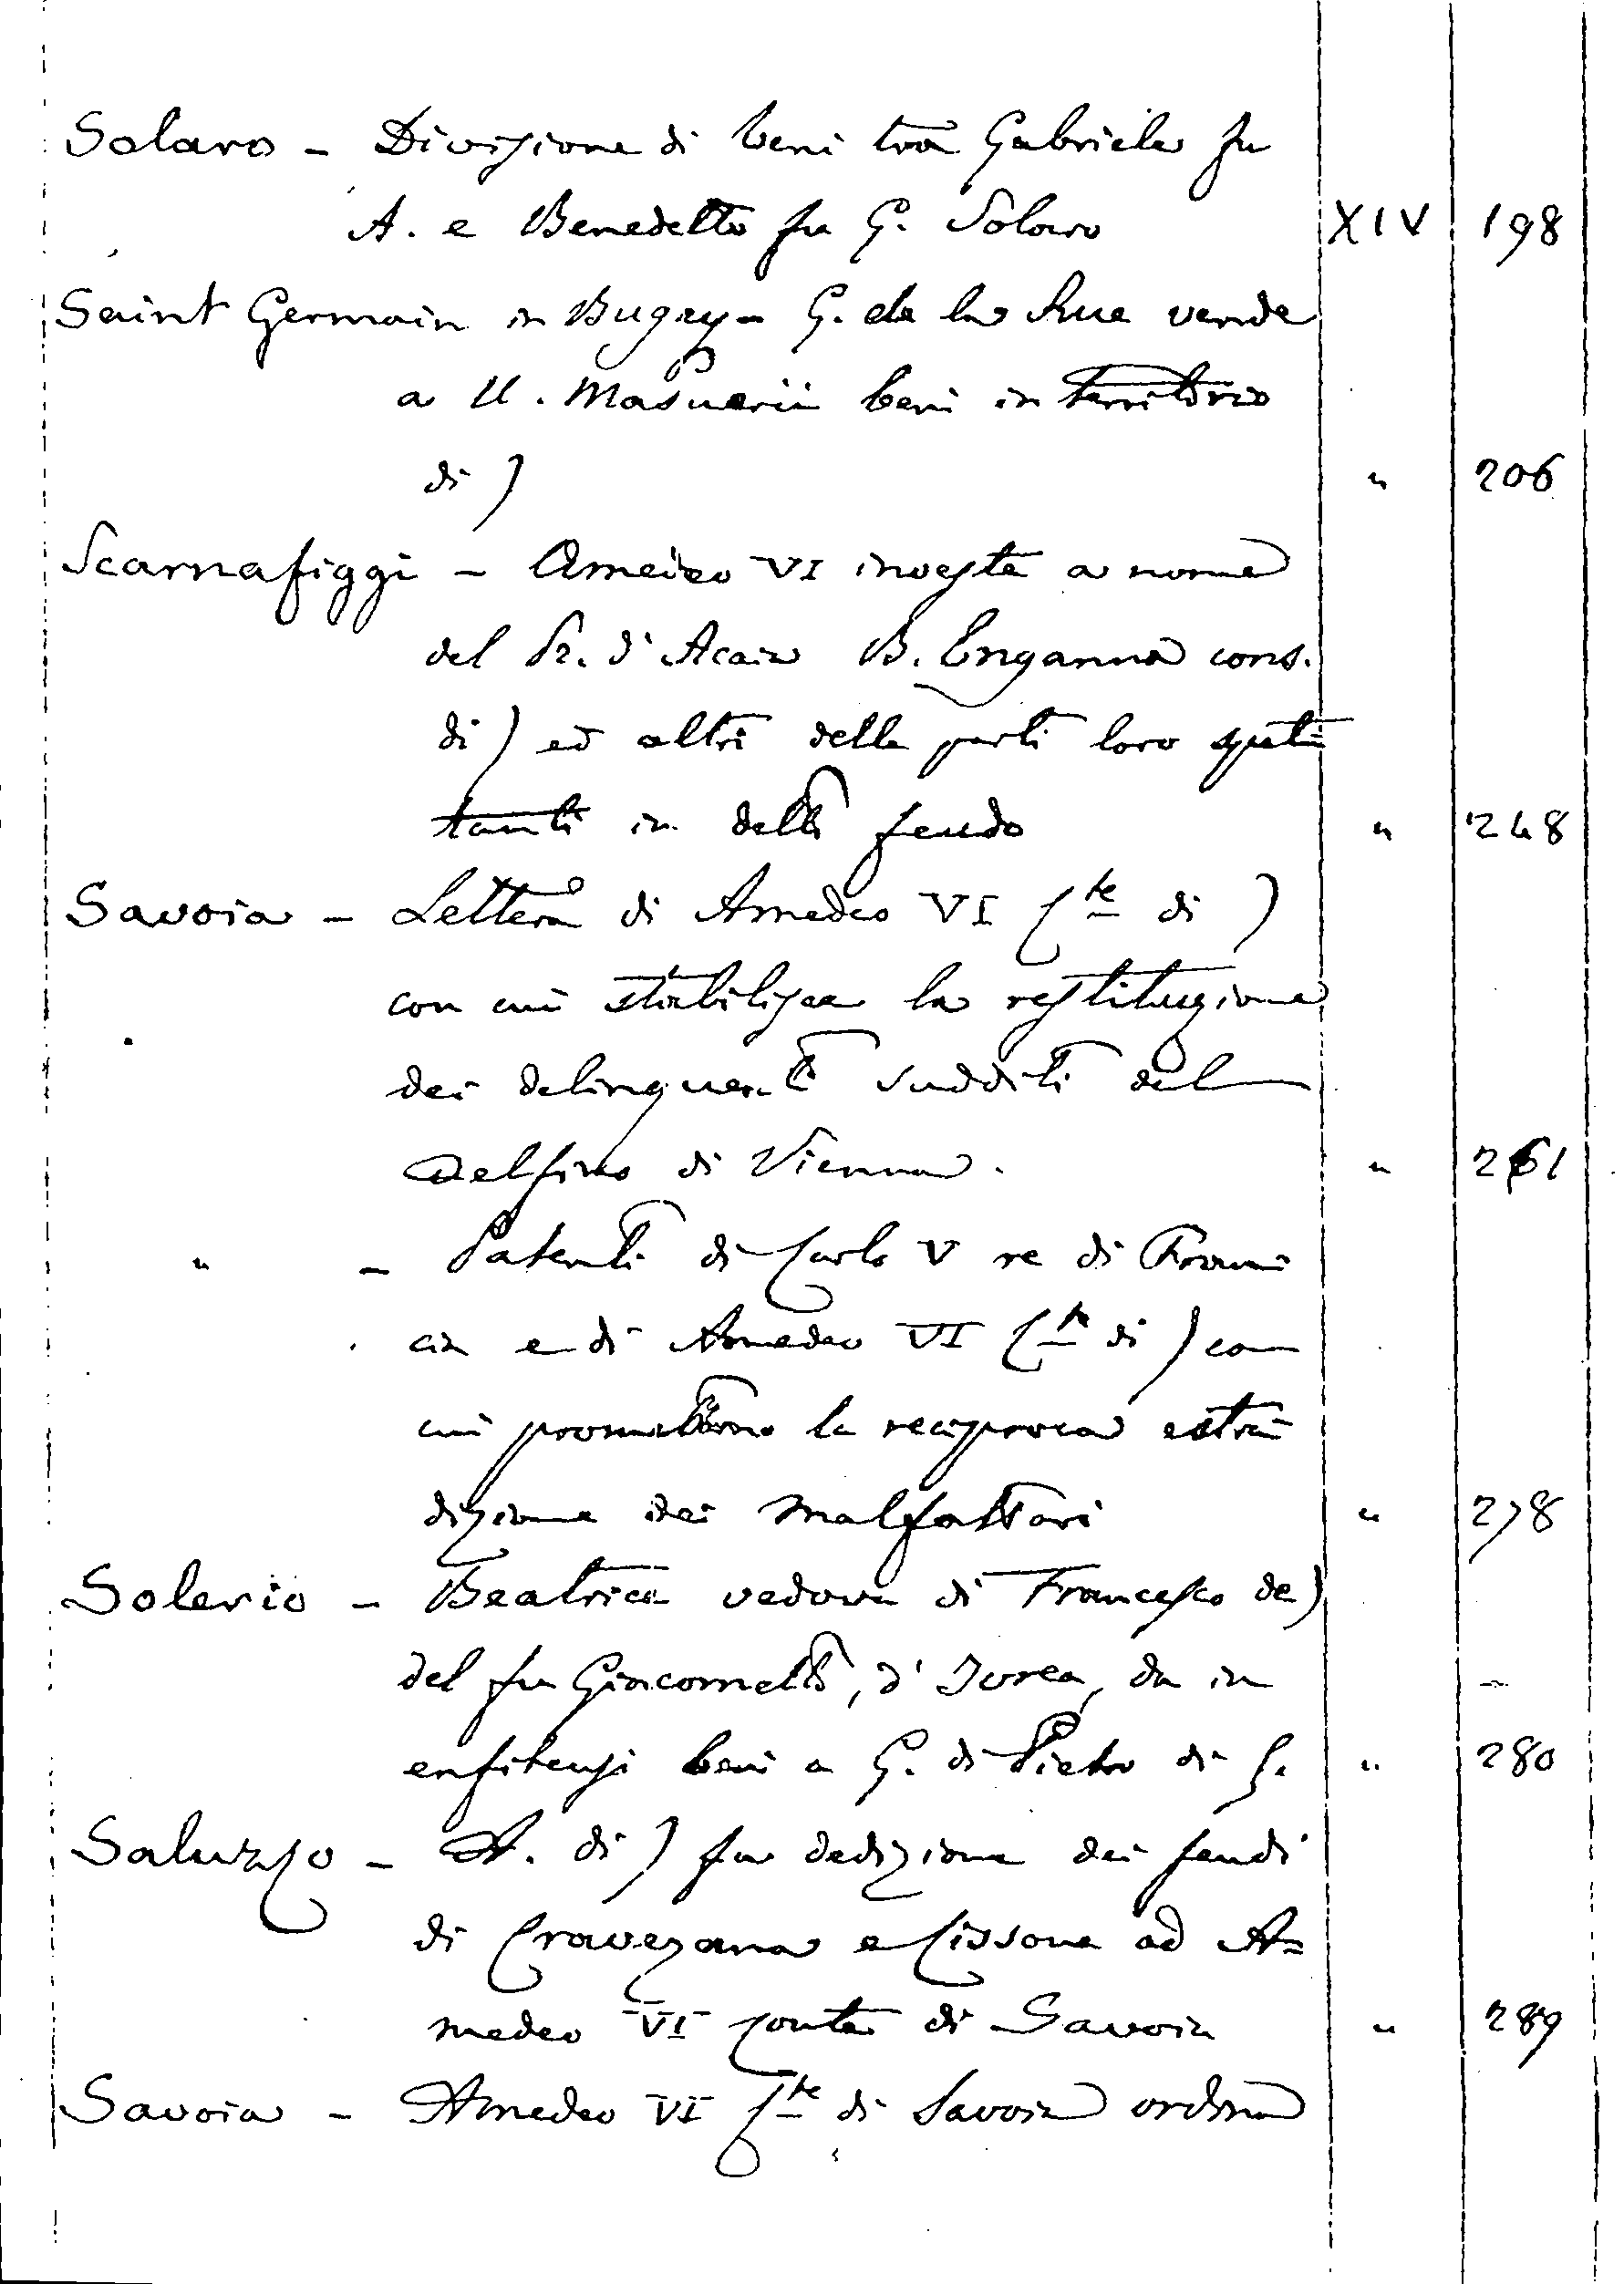 Solaro - Divisione di beni tra Gabriele fu
A. e Benedetto fu G. Solaro XIV 198
Saint Germain in Bugey - G. de la Rue vende
a U. Masuerii beni in territorio
di ) " 206
Scarnafiggi - Amedeo VI investe a nome
del Pr. d'Acaia B. Enganna cons.
di ) ed altri delle parti loro spet=
tanti in detto feudo " 248
Savoia - Lettera di Amedeo VI Cte di )
con cui stabilisce la restituzione
dei delinquenti sudditi del
Delfino di Vienna. " 261
" - Patenti di Carlo V re di Fran=
cia e di Amedeo VI (Cte di ) con
cui promettono la reciproca estra=
dizione dei malfattori " 278
Solerio - Beatrice vedova di Francesco de )
del fu Giacometto, d'Ivrea, da in
enfiteusi beni a G. di Pietro di G. " 280
Saluzzo - A. di ) fa dedizione dei feudi
di Cravezana e Cissone ad A=
medeo VI Conte di Savoia " 289
Savoia - Amedeo VI Cte di Savoia ordina